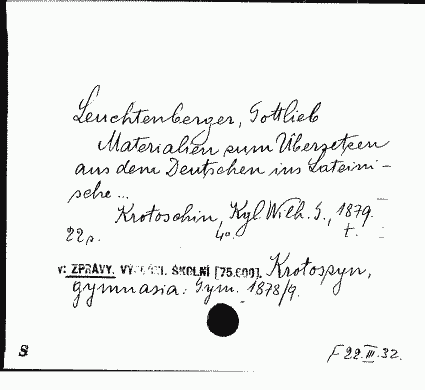 Leuchtenberger, Gottlieb
Materialien zum Übersetzen
aus dem Deutschen ins Lateini-
sche ...
Krotoschin, Kgl. Wilh. G., 1879.
22 p. 4°. t.
v: ZPRÁVY. ŠKOLNÍ [75.600]. Krotoszyn,
gymnasia: Gym. 1878/9.
S F 22.III.32.